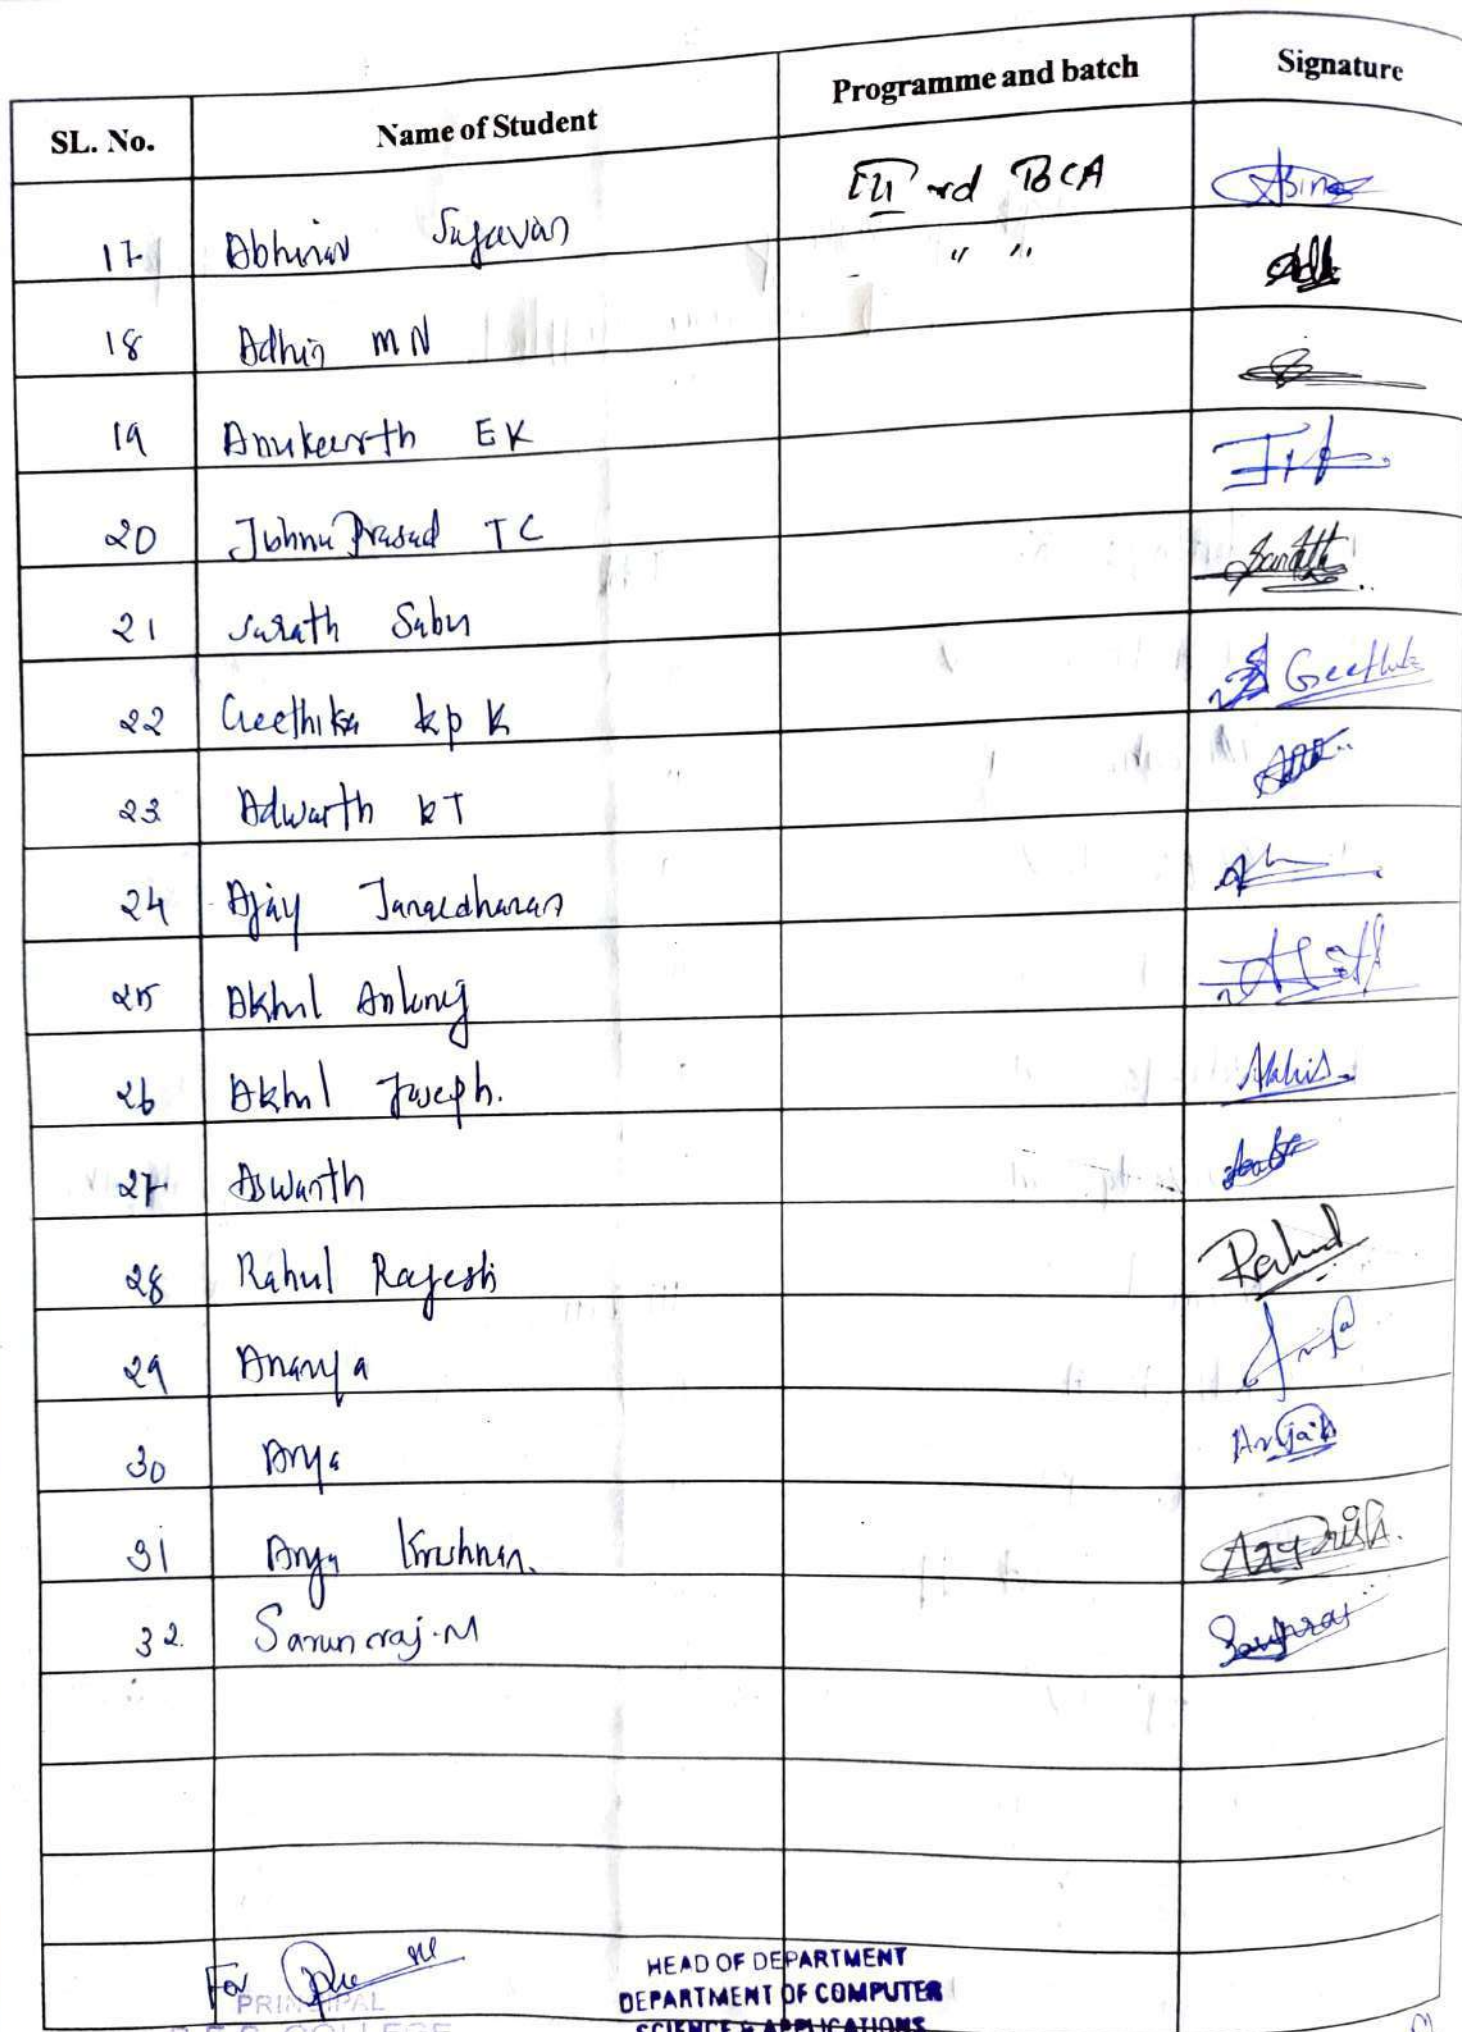 SL. No. Name of Student Programme and batch Signature
17 Abhinav Sujavan III rd BCA
18 Adhin M N " "
19 Anukeerth E K
20 Jishnu Prasad T C
21 Sarath Sabu Sarath
22 Geethika K P K Geethika
23 Adwarth K T
24 Ajay Janardhanan
25 Akhil Antony
26 Akhil Joseph.
27 Aswanth
28 Rahul Rajesh Rahul
29 Ananya
30 Arya
31 Arya Krishnan.
32. Sarunraj. M
For
PRINCIPAL
COLLEGE
HEAD OF DEPARTMENT
DEPARTMENT OF COMPUTER
SCIENCE & APPLICATIONS